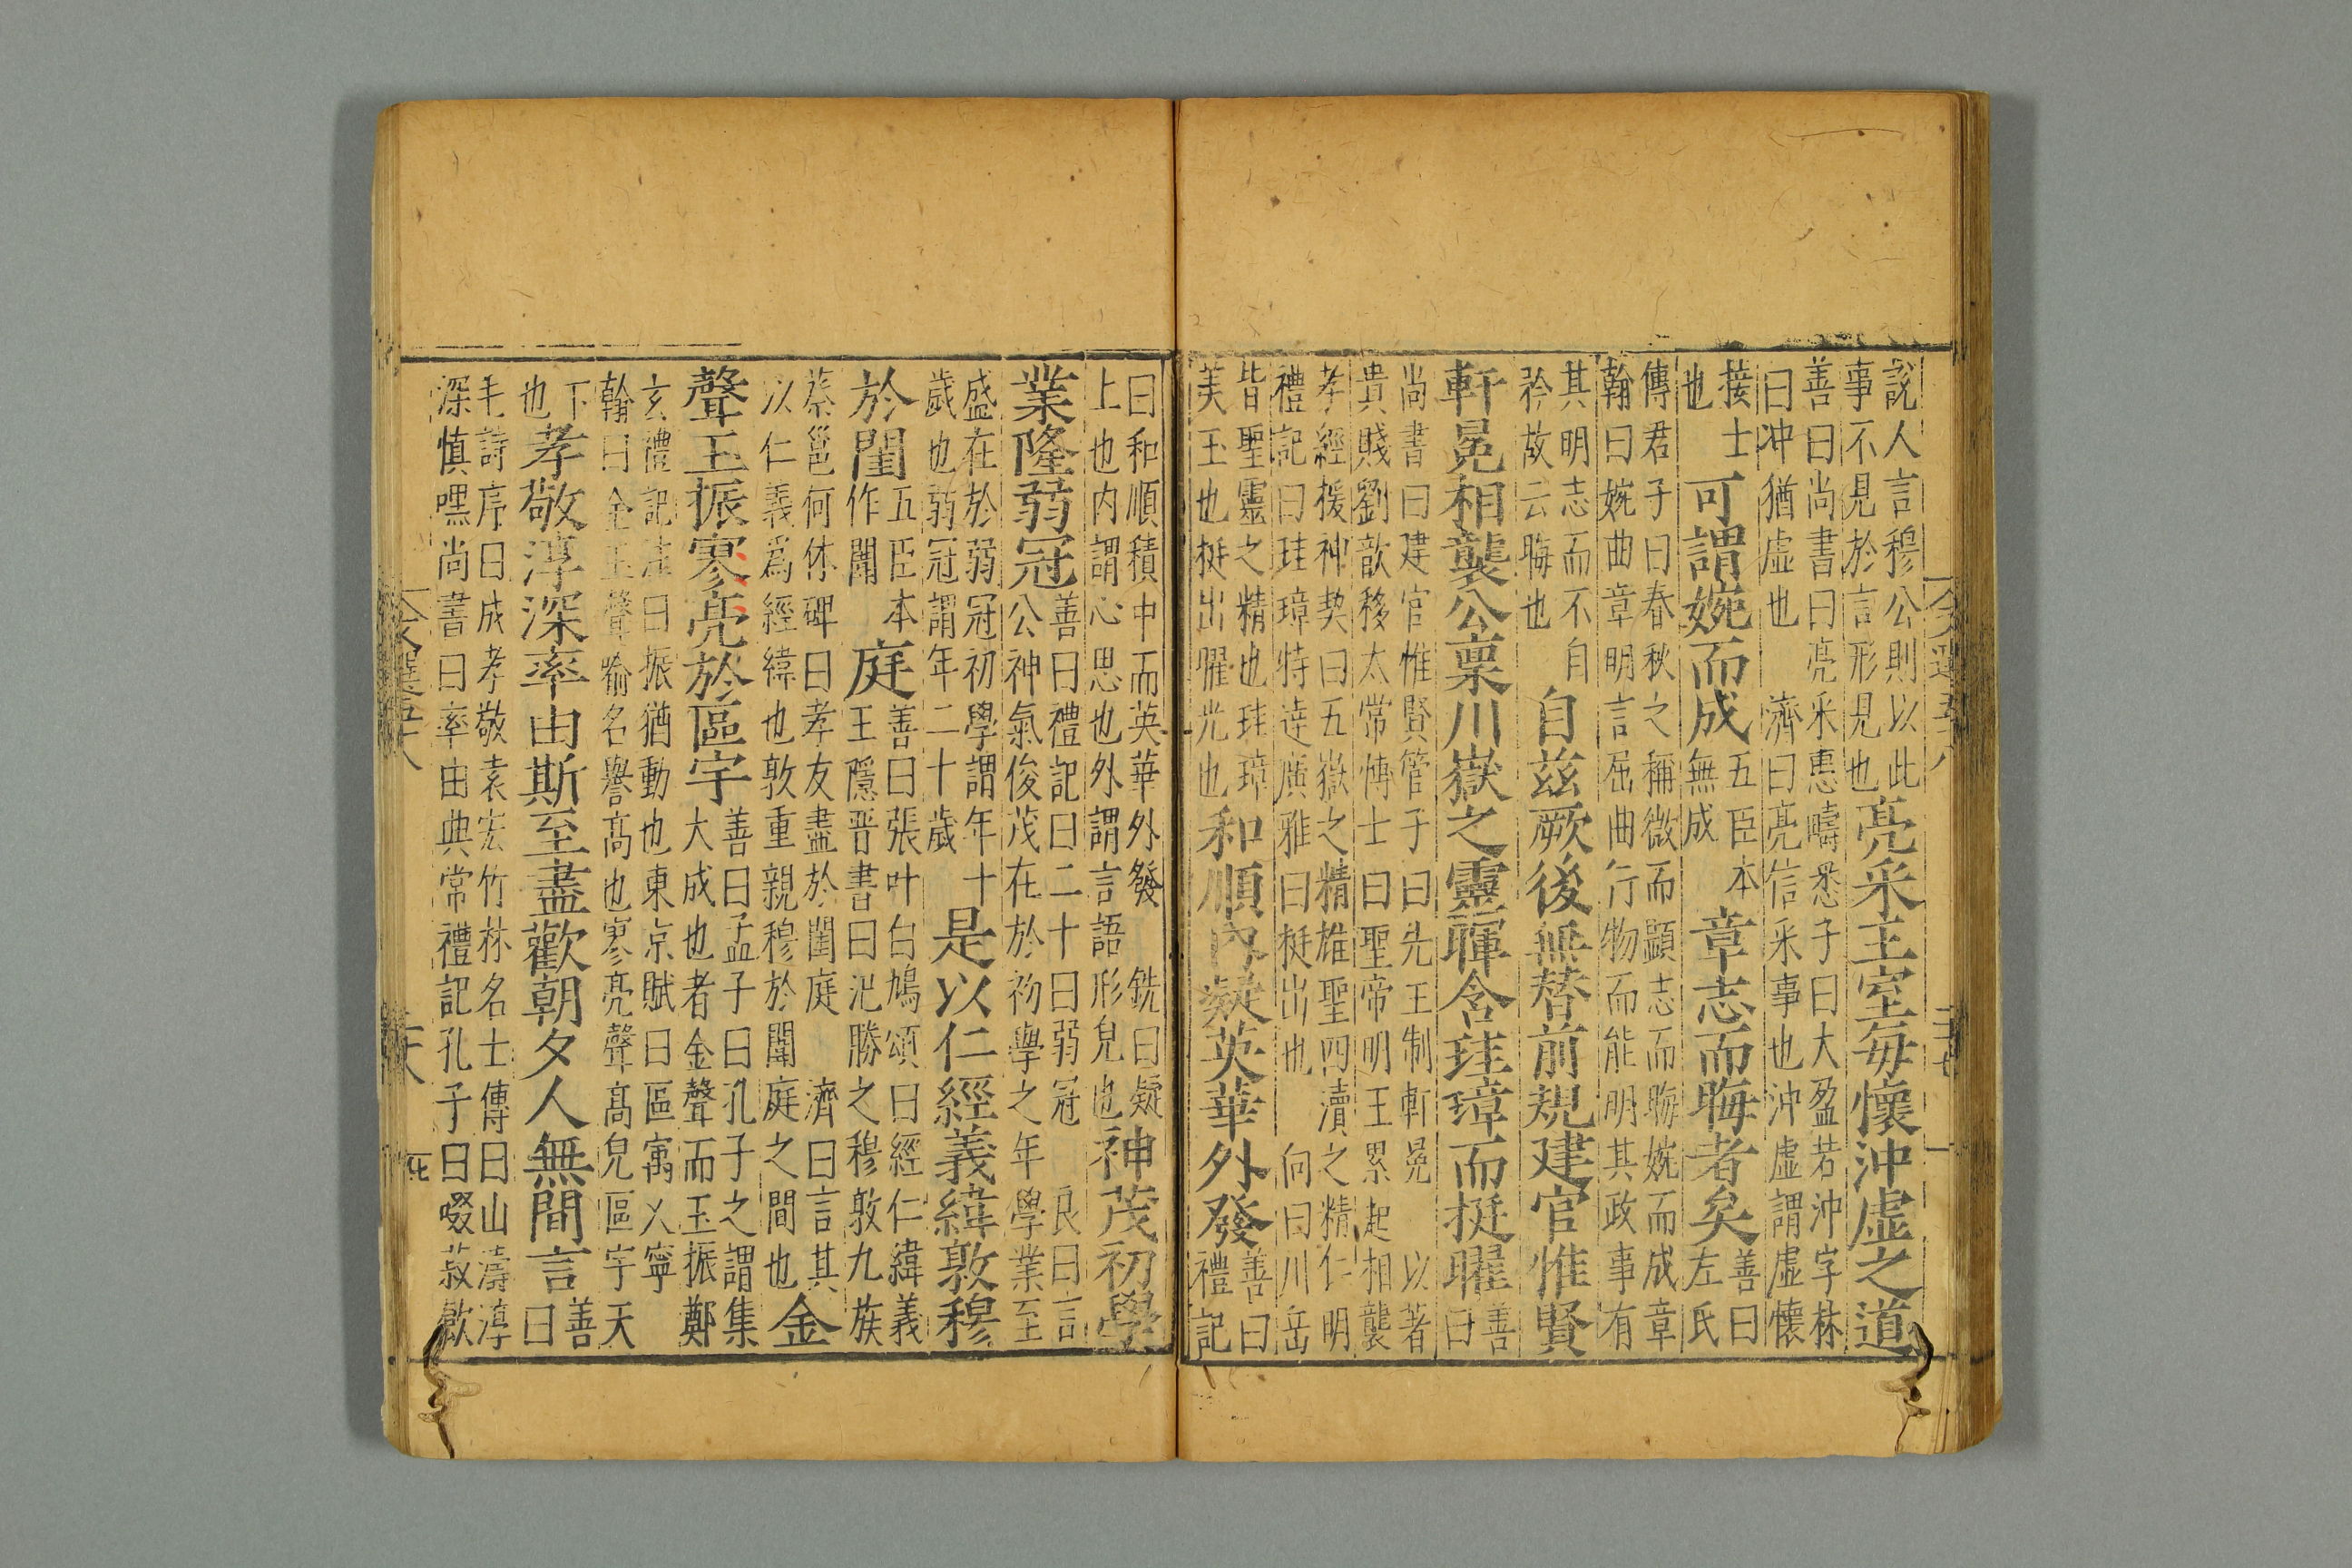 說人言穆公則以此
事不見於言形見也
亮采王室每懷沖虛之道
善曰尚書曰亮采惠疇悉子曰大盈若沖字林
曰冲猶虛也 濟曰亮信采事也沖虛謂虛懷
接士
也
可謂婉而成
五臣本
無成
章志而晦者矣
善曰
左氏
傳君子曰春秋之稱微而顯志而晦婉而成章
翰曰婉曲章明言屈曲行物而能明其政事有
其明志而不自
矜故云晦也
自茲厥後無替前規建官惟賢
軒冕相襲公稟川嶽之靈暉含珪璋而挺曜
善
曰
尚書曰建官惟賢管子曰先王制軒冕 以著
貴賤劉歆移太常博士曰聖帝明王累起相襲
孝經援神契曰五嶽之精雄聖四瀆之精仁明
禮記曰珪璋特達廣雅曰挺出也 向曰川岳
皆聖靈之精也珪璋
美玉也挺出曜光也
和順內凝英華外發
善曰
禮記
曰和順積中而英華外發 銑曰凝
上也内謂心思也外謂言語形皃也
神茂初學
業隆弱冠
善曰禮記曰二十曰弱冠 良曰言
公神氣俊茂在於初學之年學業至
盛在於弱冠初學謂年十
歲也弱冠謂年二十歲
是以仁經義緯敦穆
於閨
五臣本
作闈
庭
善曰張叶白鳩頌曰經仁緯義
王隱晋書曰氾勝之穆敦九族
蔡邕何休碑曰孝友盡於閨庭 濟曰言其
以仁義爲經緯也敦重親穆於闈庭之間也
金
聲玉振寥亮於區宇
善曰孟子曰孔子之謂集
大成也者金聲而玉振鄭
玄禮記注曰振猶動也東京賦曰區寓乂寧
翰曰金玉聲喻名譽高也寥亮聲高皃區宇天
下
也
孝敬淳深率由斯至盡歡朝夕人無間言
善
曰
毛詩序曰成孝敬袁宏竹林名士傳曰山濤淳
深慎嘿尚書曰率由典常禮記孔子曰啜菽飲
文選五十八